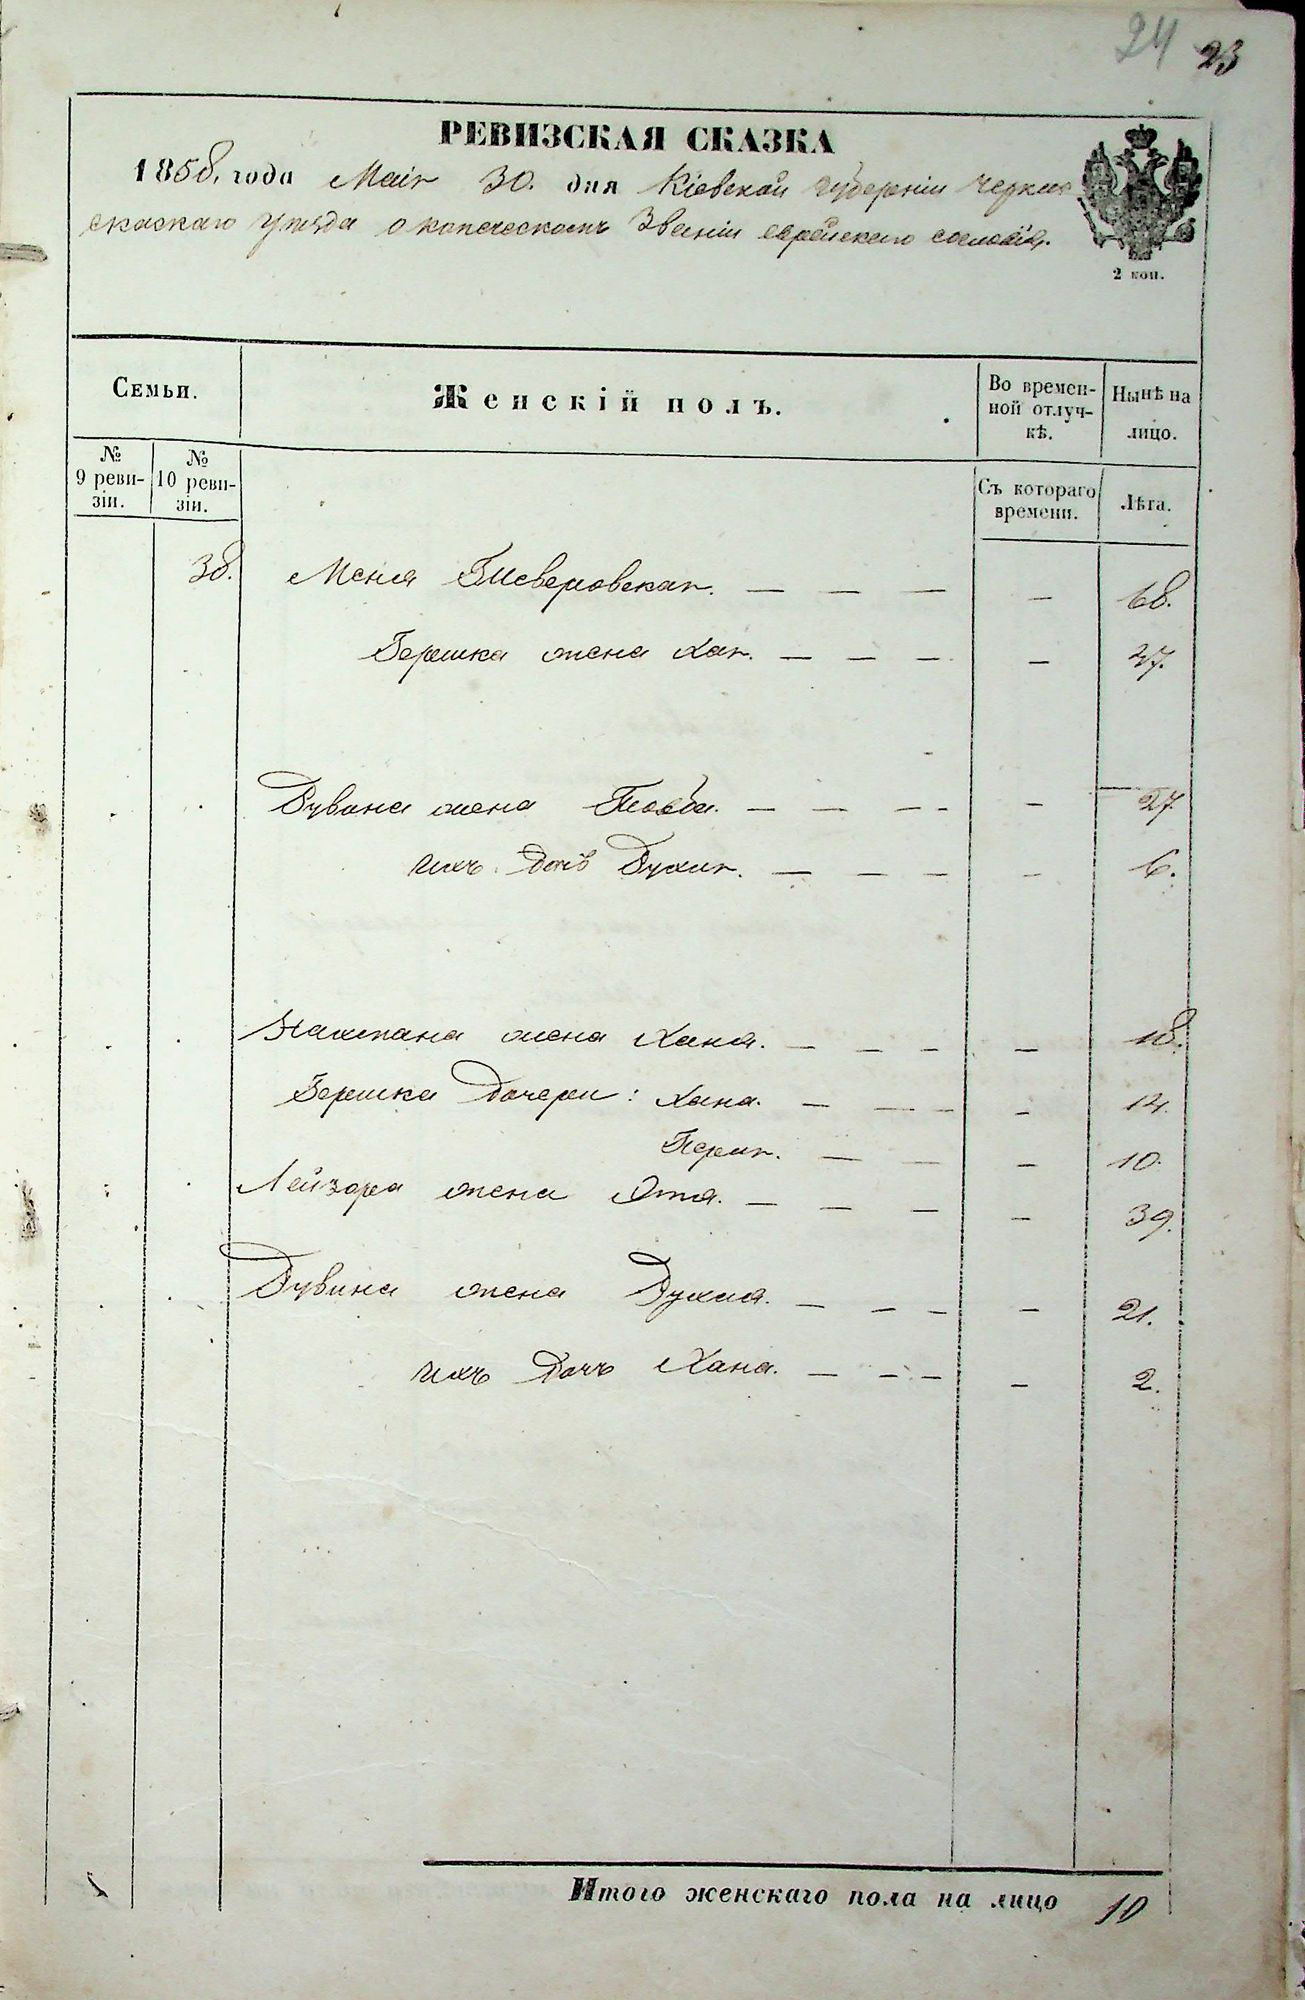 24 23
РЕВИЗСКАЯ СКАЗКА
1858. года Маія 30. дня Кіевской Губерніи Черка
скаскаго уѣзда о купеческомъ Званіи еврейскаго сословія.
2 коп.
Семьи.
Женскій полъ.
Во времен-
ной отлуч-
кѣ.
Нынѣ на
лицо.
№
9 реви-
зіи.
№
10 реви-
зіи.
Съ котораго
времени.
Лѣта.
38. Меня — — — — 68.
Бершка жена Хая. — — — — 37.
Дувина жена — — — — 27
ихъ дочь Духия. — — — — 6.
жена Хана. — — — — 18.
Бершка дочери: Хана. — — — — 14.
Перля. — — — 10.
Лейзора жена Этя. — — — — 39.
Дувина жена Духия. — — — — 21.
ихъ дочь Хана. — — — — 2.
Итого женскаго пола на лицо 10